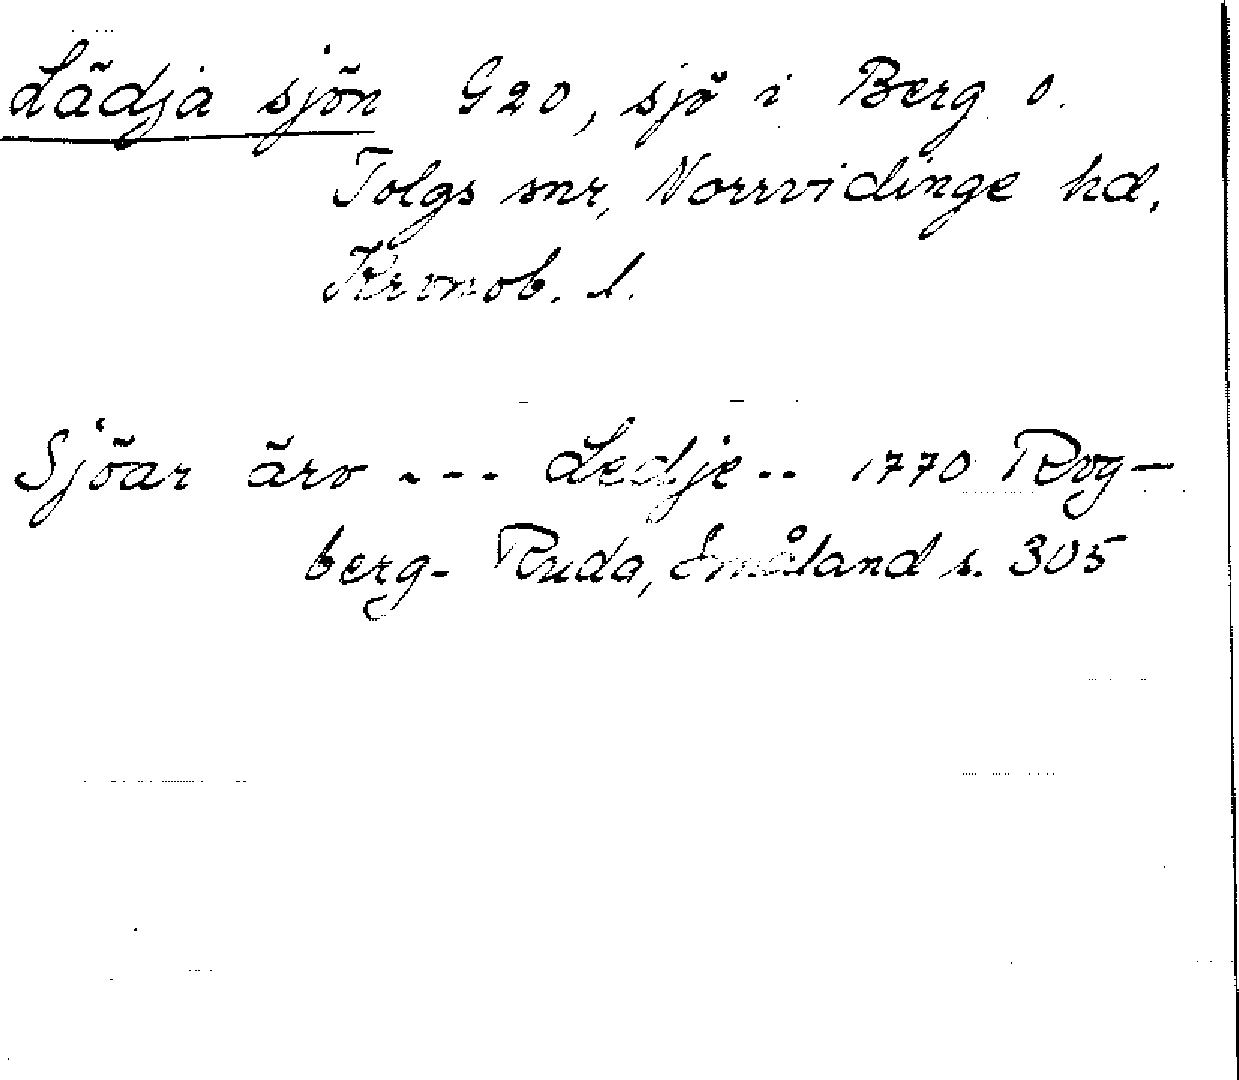 Lädja sjön G20, sjö i Berg o.
Tolgs snr, Norrvidinge hd,
Kronob. l.
Sjöar äro --- Ledje -- 1770 Rog-
berg- Ruda, Småland s. 305